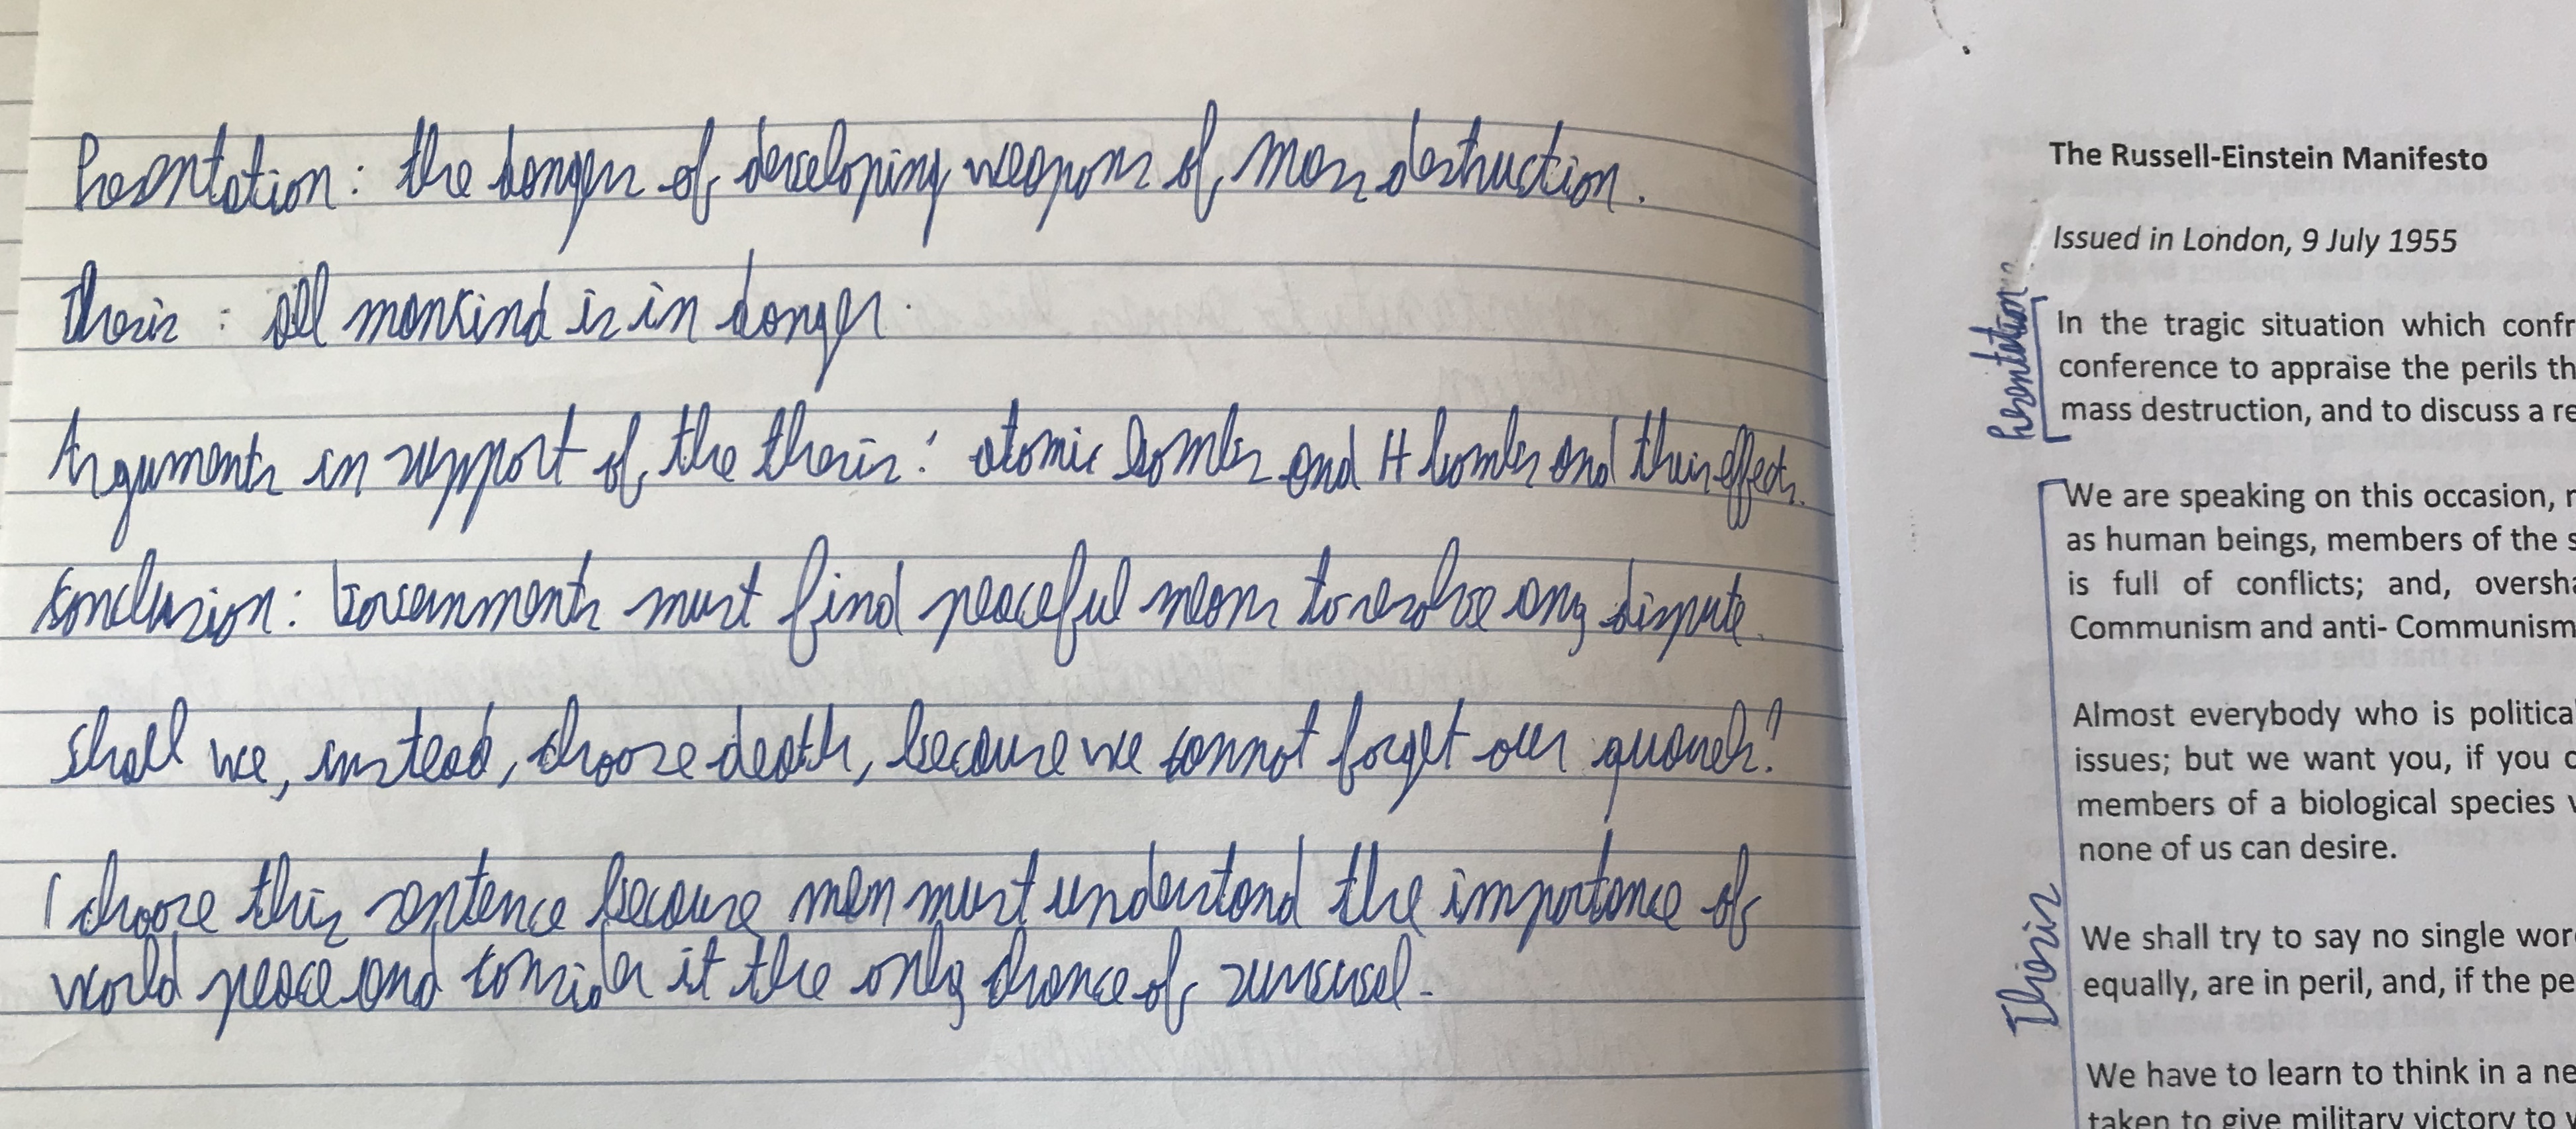 Presentation: the danger of developing weapons of mass destruction.
Thesis: all mankind is in danger.
Arguments in support of the thesis: atomic bombs and H bombs and their effects.
Conclusion: Governments must find peaceful means to resolve any dispute.
Shall we, instead, choose death, because we cannot forget our quarrels?
I choose this sentence because men must understand the importance of
world peace and consider it the only chance of survival.
The Russell-Einstein Manifesto
Issued in London, 9 July 1955
Presentation
In the tragic situation which confr
conference to appraise the perils th
mass destruction, and to discuss a re
We are speaking on this occasion, n
as human beings, members of the s
is full of conflicts; and, oversha
Communism and anti- Communism
Almost everybody who is political
issues; but we want you, if you c
members of a biological species w
none of us can desire.
Thesis
We shall try to say no single wor
equally, are in peril, and, if the pe
We have to learn to think in a ne
taken to give military victory to